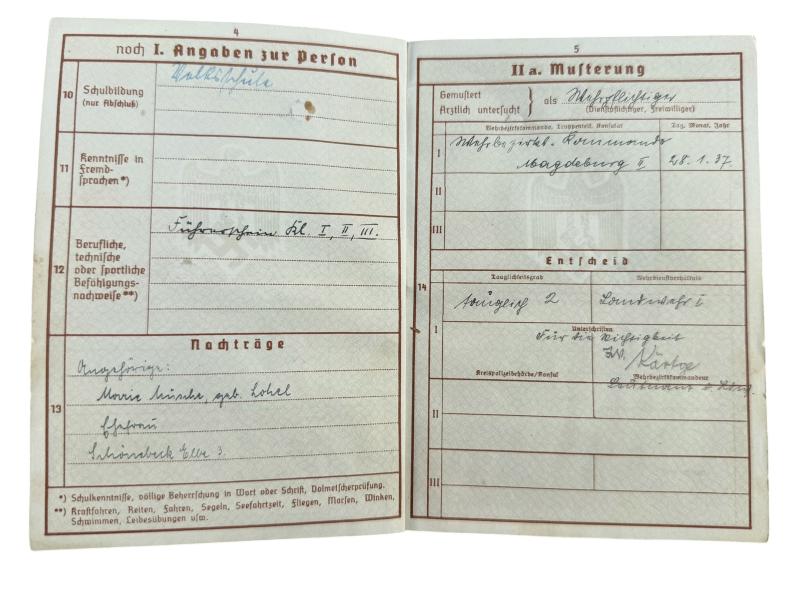 4
noch I. Angaben zur Person
10
Schulbildung
(nur Abschluß)
Volksschule
11
Kenntnisse in
Fremd-
sprachen*)
12
Berufliche,
technische
oder sportliche
Befähigungs-
nachweise**)
Führerschein Kl. I, II, III.
Nachträge
13
Angehörige:
Marie geb.
Ehefrau
Schönebeck Elbe 3.
*) Schulkenntnisse, völlige Beherrschung in Wort oder Schrift, Dolmetscherprüfung.
**) Kraftfahren, Reiten, Fahren, Segeln, Seefahrtzeit, Fliegen, Morsen, Winken,
Schwimmen, Leibesübungen usw.
5
II a. Musterung
Gemustert
Ärztlich untersucht } als Wehrpflichtiger
(Dienstpflichtiger, Freiwilliger)
Wehrbezirkskommando, Truppenteil, Konsulat
Tag, Monat, Jahr
I
Wehrbezirks-Kommando
Magdeburg II
28.1.37.
II
III
Entscheid
14
Tauglichkeitsgrad
Wehrdienstverhältnis
tauglich 2
Landwehr I
I
Unterschriften
Für die Richtigkeit
Kreispolizeibehörde/Konsul
Wehrbezirkskommandeur
Leutnant
II
III